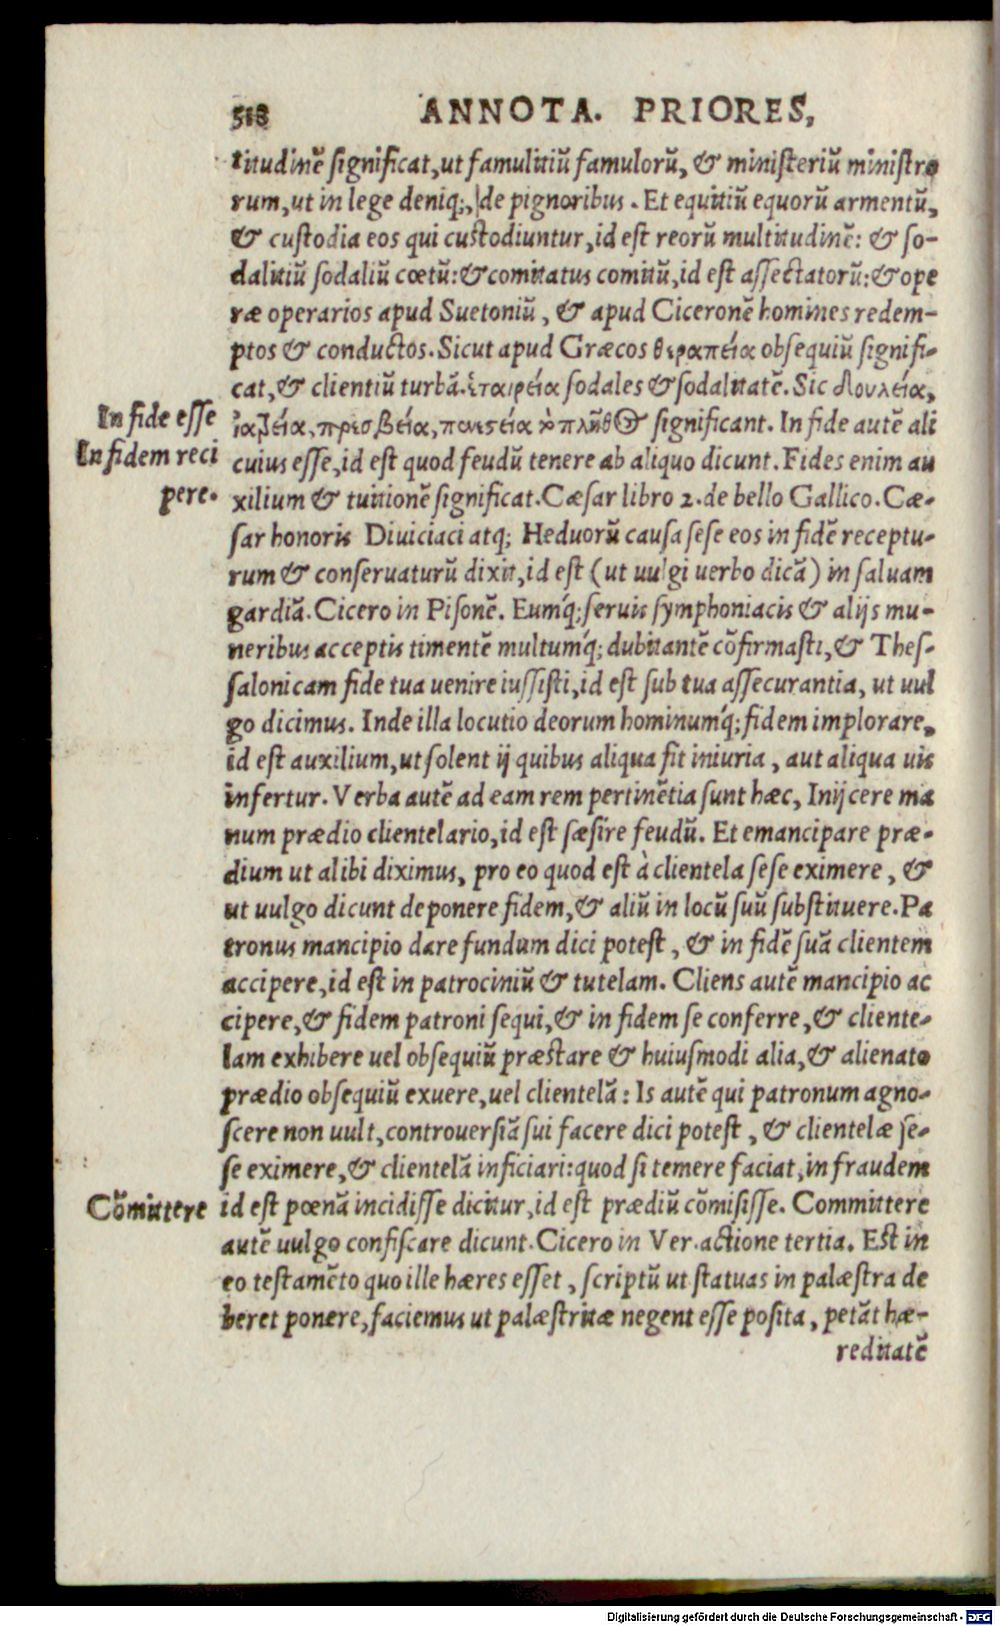 518 ANNOTA. PRIORES,
titudinē significat, ut famulitiū famulorū, & ministeriū ministro
rum, ut in lege deniq;, de pignoribus. Et equitiū equorū armentū,
& custodia eos qui custodiuntur, id est reorū multitudinē: & so-
dalitiū sodaliū cœtū: & comitatus comitū, id est assectatorū: & ope
ræ operarios apud Suetoniū, & apud Ciceronē homines redem-
ptos & conductos. Sicut apud Græcos θεραπεία obsequiū signifi-
cat, & clientiū turbā. ἑταιρεία sodales & sodalitatē. Sic δουλεία,
πρεσβεία, significant. In fide autē ali
In fide esse
cuius esse, id est quod feudū tenere ab aliquo dicunt. Fides enim au
In fidem reci
pere.
xilium & tuitionē significat. Cæsar libro 2. de bello Gallico. Cæ-
sar honoris Diuiciaci atq; Heduorū causa sese eos in fidē receptu-
rum & conseruaturū dixit, id est (ut uulgi uerbo dicā) in saluam
gardiā. Cicero in Pisonē. Eumq́; seruis symphoniacis & alijs mu-
neribus acceptis timentē multumq́; dubitantē cōfirmasti, & Thes-
salonicam fide tua uenire iussisti, id est sub tua assecurantia, ut uul
go dicimus. Inde illa locutio deorum hominumq́; fidem implorare,
id est auxilium, ut solent ij quibus aliqua fit iniuria, aut aliqua uis
infertur. Verba autē ad eam rem pertinētia sunt hæc, Inijcere ma
num prædio clientelario, id est sæsire feudū. Et emancipare præ-
dium ut alibi diximus, pro eo quod est à clientela sese eximere, &
ut uulgo dicunt deponere fidem, & aliū in locū suū substituere. Pa
tronus mancipio dare fundum dici potest, & in fidē suā clientem
accipere, id est in patrociniū & tutelam. Cliens autē mancipio ac
cipere, & fidem patroni sequi, & in fidem se conferre, & cliente-
lam exhibere uel obsequiū præstare & huiusmodi alia, & alienato
prædio obsequiū exuere, uel clientelā: Is autē qui patronum agno-
scere non uult, controuersiā sui facere dici potest, & clientelæ se-
se eximere, & clientelā inficiari: quod si temere faciat, in fraudem
Cōmittere
id est pœnā incidisse dicitur, id est prædiū cōmisisse. Committere
autē uulgo confiscare dicunt. Cicero in Ver. actione tertia. Est in
eo testamēto quo ille hæres esset, scriptū ut statuas in palæstra de
beret ponere, faciemus ut palæstritæ negent esse posita, petāt hæ-
reditatē
Digitalisierung gefördert durch die Deutsche Forschungsgemeinschaft - DFG